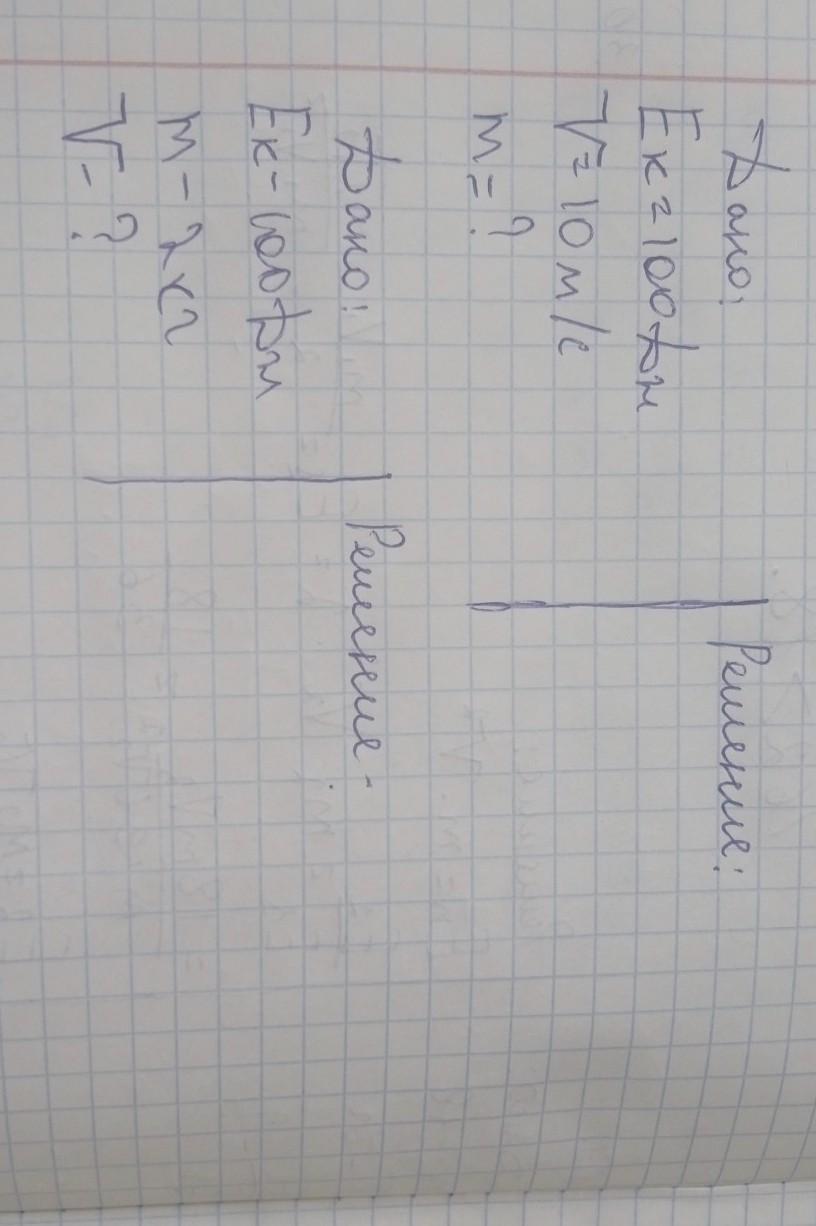 Дано:
Eк=100Дж
V=10м/с
m=?
Решение:
Дано:
Eк-100Дж
m-2кг
V-?
Решение-